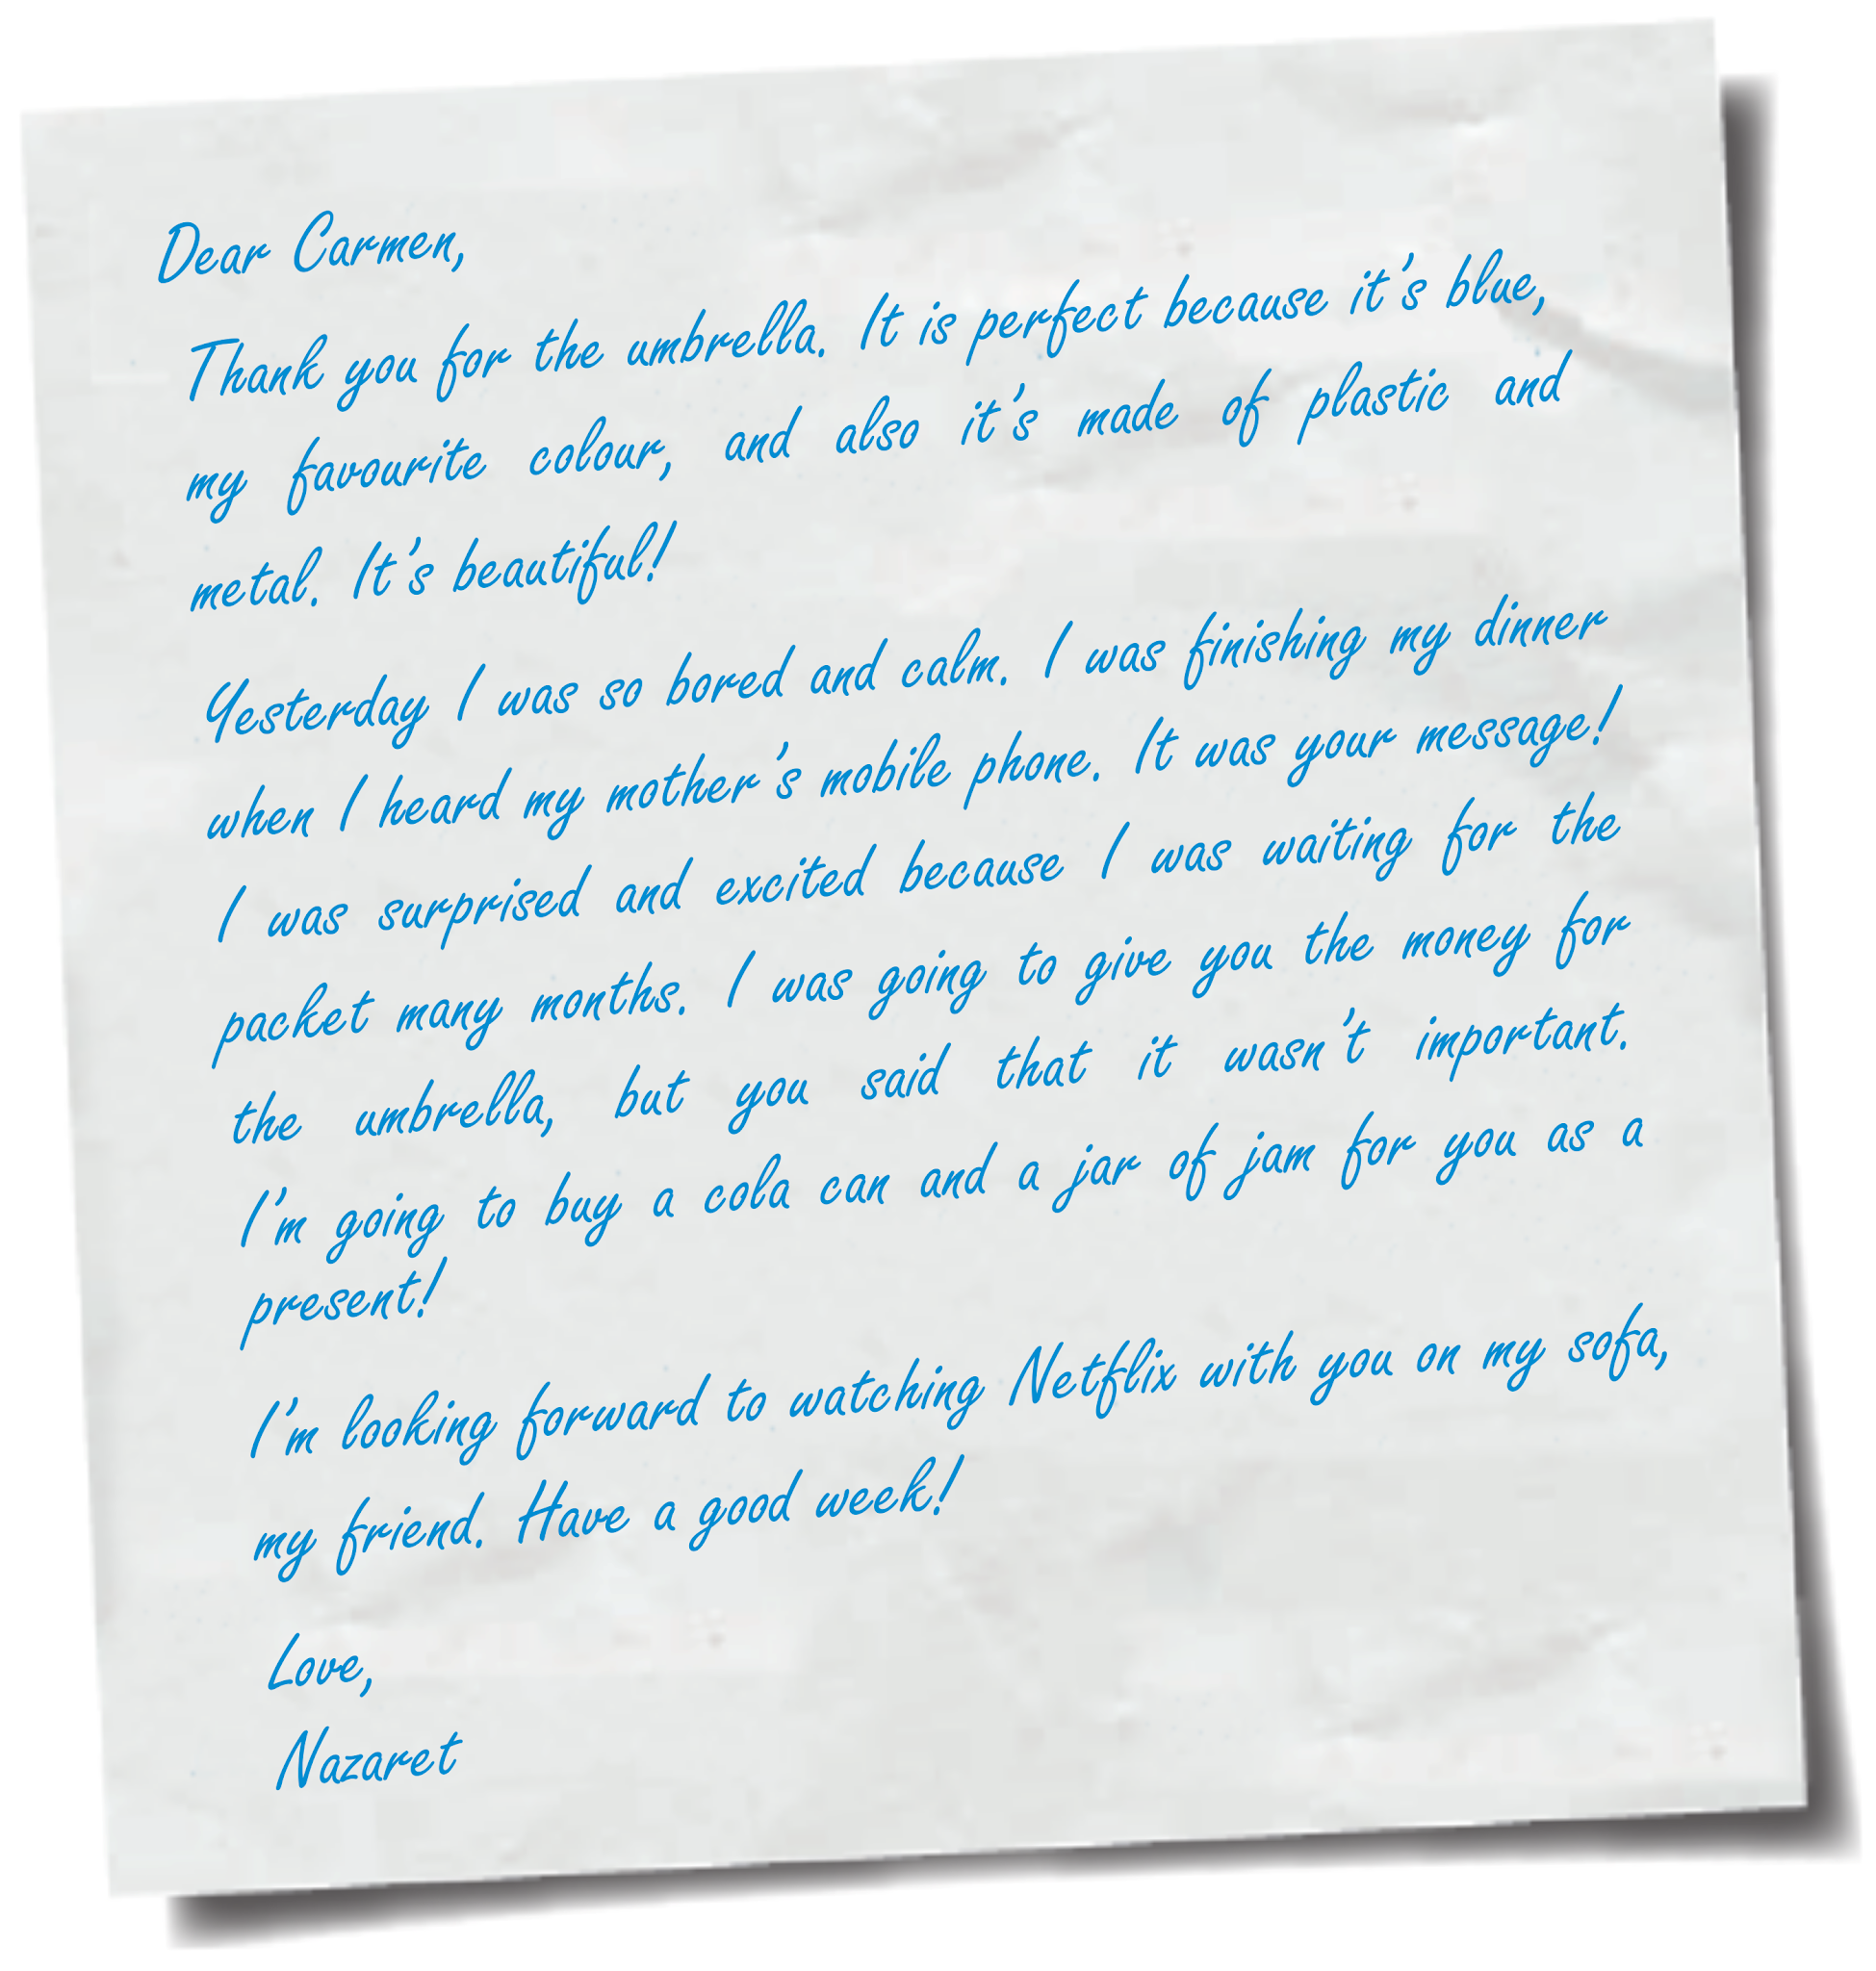 Dear Carmen,
Thank you for the umbrella. It is perfect because it's blue,
my favourite colour, and also it's made of plastic and
metal. It's beautiful!
Yesterday I was so bored and calm. I was finishing my dinner
when I heard my mother's mobile phone. It was your message!
I was surprised and excited because I was waiting for the
packet many months. I was going to give you the money for
the umbrella, but you said that it wasn't important.
I'm going to buy a cola can and a jar of jam for you as a
present!
I'm looking forward to watching Netflix with you on my sofa,
my friend. Have a good week!
Love,
Nazaret